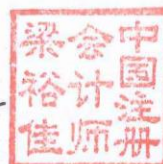 中国注册
会计师
梁裕佳